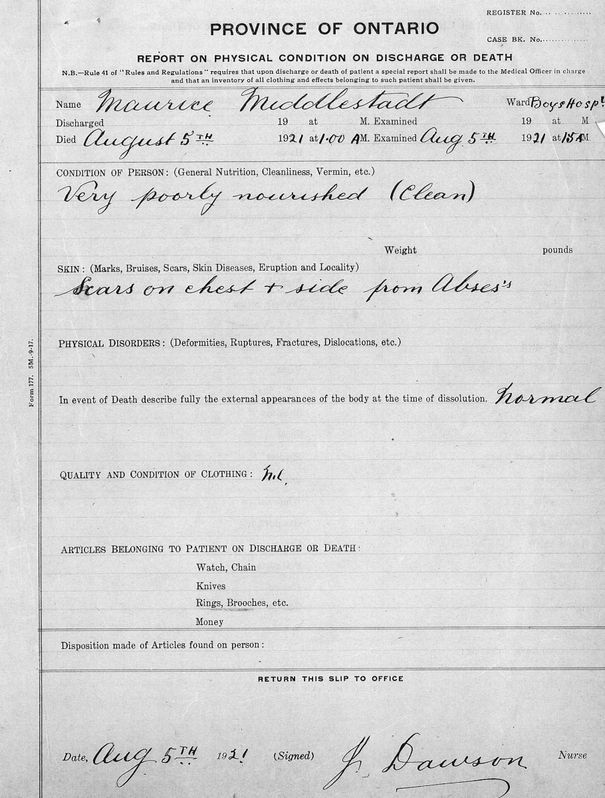 REGISTER No. ..............
PROVINCE OF ONTARIO
CASE BK. No. ..............
REPORT ON PHYSICAL CONDITION ON DISCHARGE OR DEATH
N.B.—Rule 41 of "Rules and Regulations" requires that upon discharge or death of patient a special report shall be made to the Medical Officer in charge
and that an inventory of all clothing and effects belonging to such patient shall be given.
Name Maurice Middlestadt Ward Boys Hospl
Discharged 19 at M. Examined 19 at M
Died August 5TH 1921 at 1.00 AM. Examined Aug 5TH 1921 at 1.15 AM
CONDITION OF PERSON: (General Nutrition, Cleanliness, Vermin, etc.)
Very poorly nourished (Clean)
Weight pounds
SKIN: (Marks, Bruises, Scars, Skin Diseases, Eruption and Locality)
Scars on chest + side from Abses's
PHYSICAL DISORDERS: (Deformities, Ruptures, Fractures, Dislocations, etc.)
Form 177. 5M.-9-17.
In event of Death describe fully the external appearances of the body at the time of dissolution. Normal
QUALITY AND CONDITION OF CLOTHING: Nil.
ARTICLES BELONGING TO PATIENT ON DISCHARGE OR DEATH:
Watch, Chain
Knives
Rings, Brooches, etc.
Money
Disposition made of Articles found on person:
RETURN THIS SLIP TO OFFICE
Date, Aug 5TH 1921 (Signed) J. Dawson Nurse